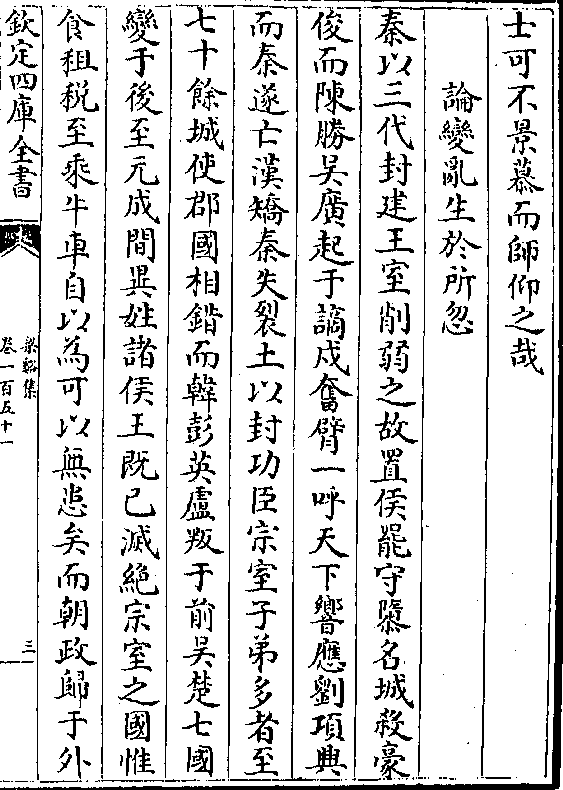 士可不景慕而師仰之哉
論變亂生於所忽
秦以三代封建王室削弱之故置侯罷守隳名城殺豪
俊而陳勝吳廣起于謫戍奮臂一呼天下響應劉項興
而秦遂亡漢矯秦失裂土以封功臣宗室子弟多者至
七十餘城使郡國相錯而韓彭英盧叛于前吳楚七國
變于後至元成間異姓諸侯王既已滅絶宗室之國惟
食租税至乘牛車自以為可以無患矣而朝政歸于外
欽定四庫全書
梁谿集
卷一百五十一
三